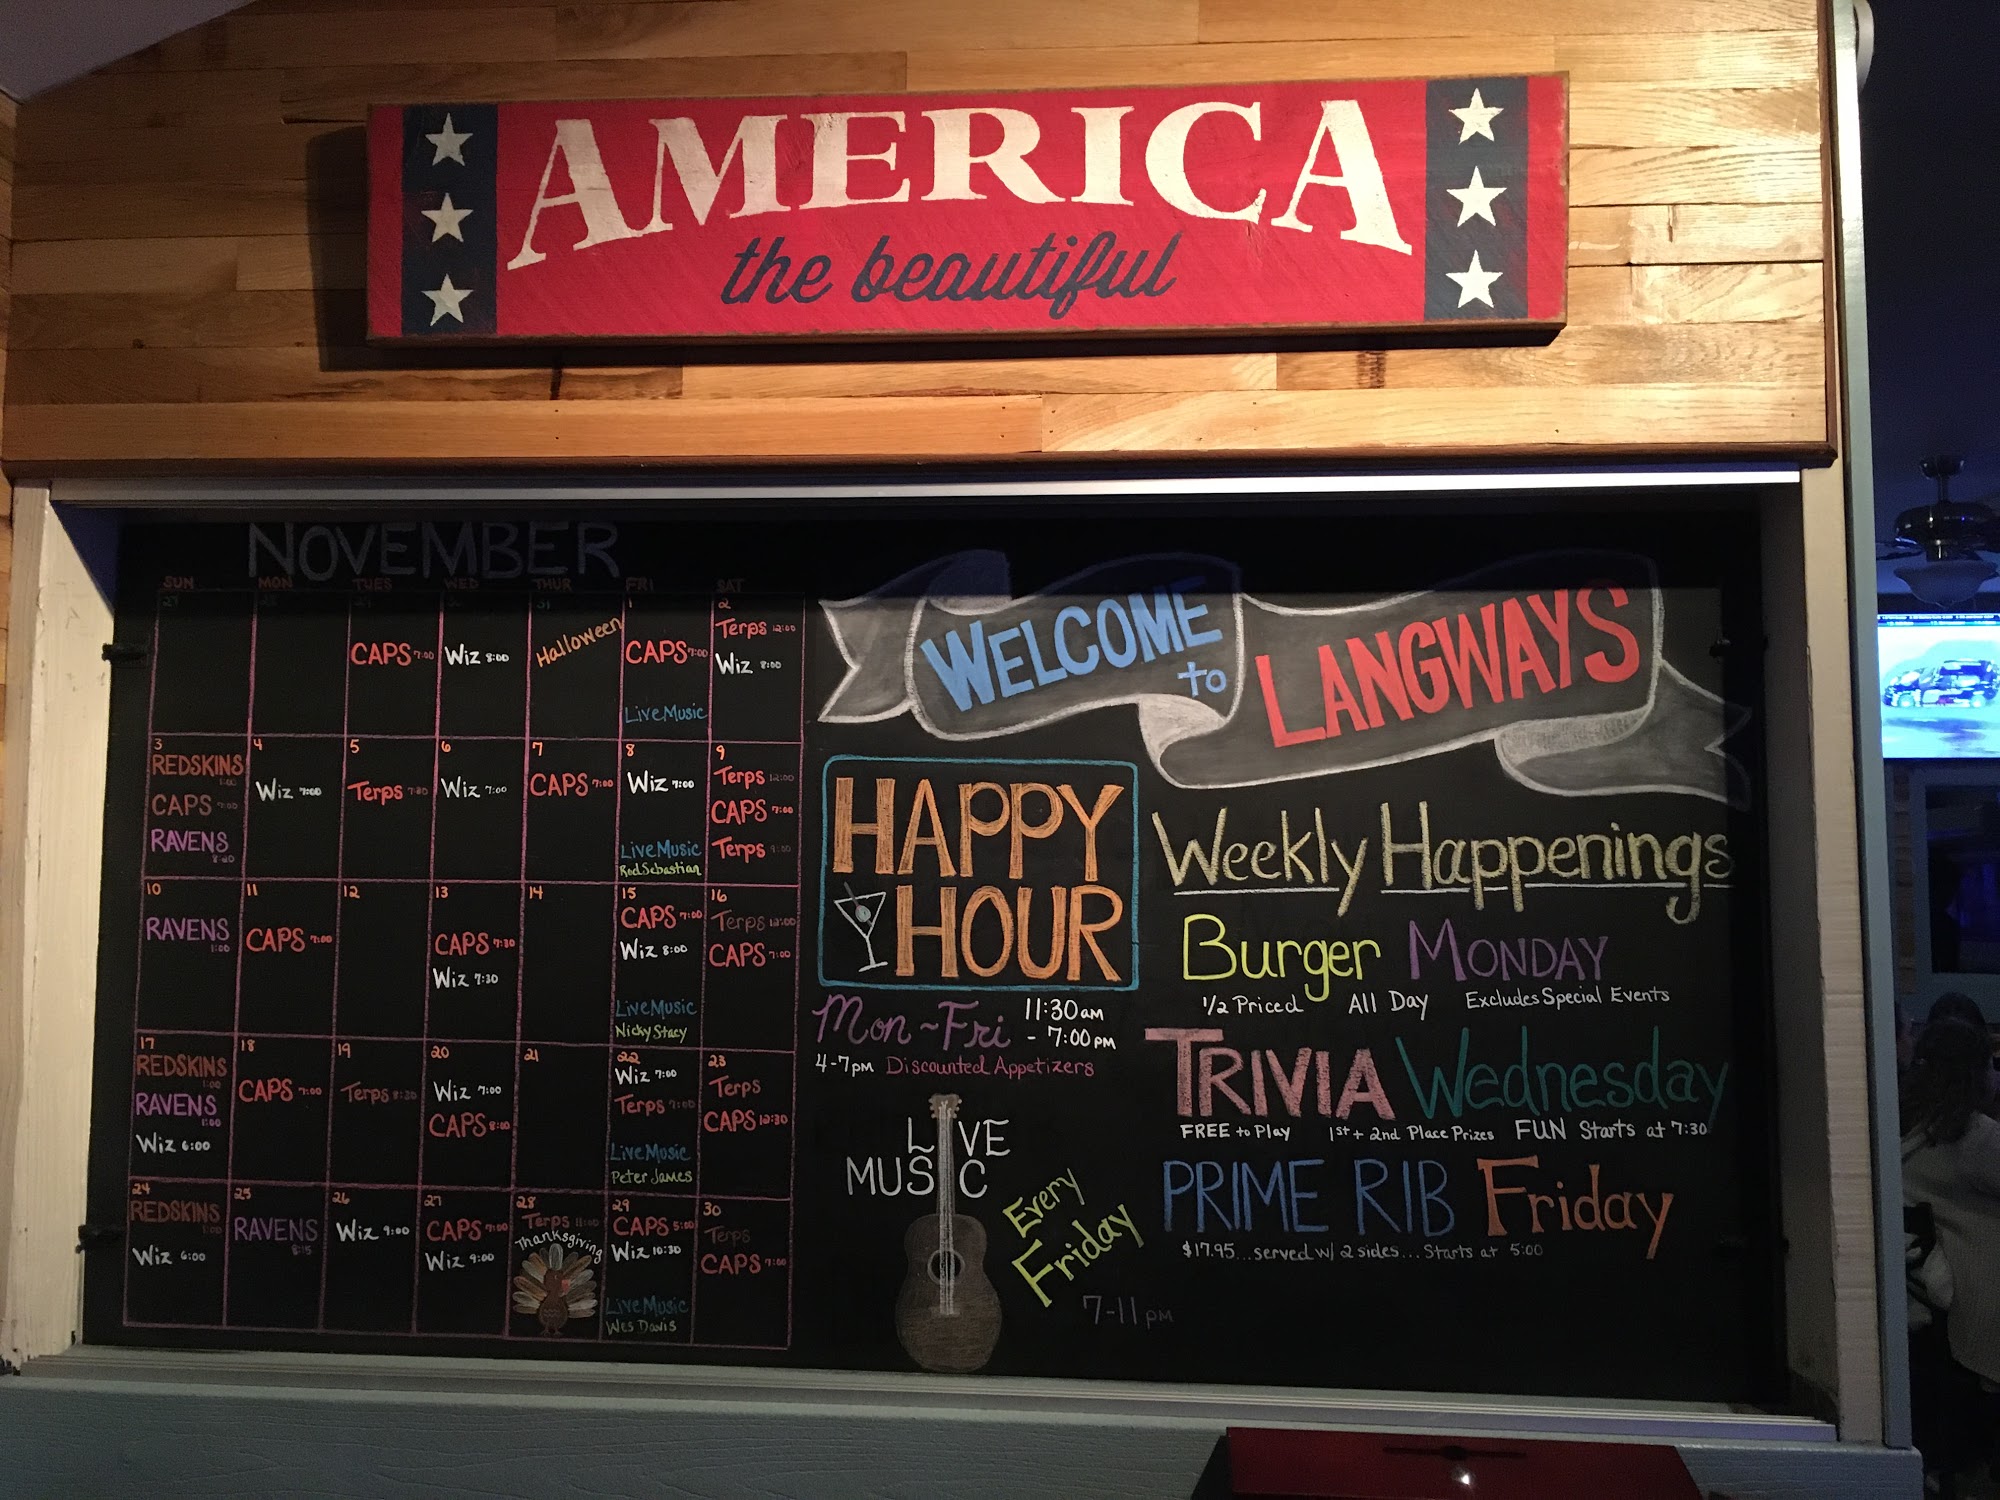 AMERICA
the beautiful
NOVEMBER
SUN MON TUES WED THUR FRI SAT
27 28 29 30 31 1 2
CAPS 7:00
Wiz 8:00
Halloween
CAPS 7:00
Live Music
Terps 12:00
Wiz 8:00
3
REDSKINS
1:00
CAPS 7:00
RAVENS
8:20
4
Wiz 7:00
5
Terps
6
Wiz 7:00
7
CAPS 7:00
8
Wiz 7:00
Live Music
Rod Sebastian
9
Terps 12:00
CAPS 7:00
Terps 9:00
10
RAVENS
1:00
11
CAPS 7:00
12
13
CAPS 7:30
Wiz 7:30
14
15
CAPS 7:00
Wiz 8:00
Live Music
Nicky Stacy
16
Terps 12:00
CAPS 7:00
17
REDSKINS
1:00
RAVENS
1:00
Wiz 6:00
18
CAPS 7:00
19
Terps 8:30
20
Wiz 7:00
CAPS 8:00
21
22
Wiz 7:00
Terps 7:00
Live Music
Peter James
23
Terps
CAPS 12:30
24
REDSKINS
1:00
Wiz 6:00
25
RAVENS
8:15
26
Wiz 9:00
27
CAPS 7:00
Wiz 9:00
28
Terps 11:00
Thanksgiving
29
CAPS 5:00
Wiz 10:30
Live Music
Wes Davis
30
Terps
CAPS 7:00
WELCOME
to
LANGWAYS
HAPPY
HOUR
Mon~Fri 11:30am
- 7:00pm
4-7pm Discounted Appetizers
LIVE
MUSIC
Every
Friday
7-11pm
Weekly Happenings
Burger MONDAY
1/2 Priced All Day Excludes Special Events
TRIVIA Wednesday
FREE to Play 1st + 2nd Place Prizes FUN Starts at 7:30
PRIME RIB Friday
$17.95...served w/ 2 sides...Starts at 5:00